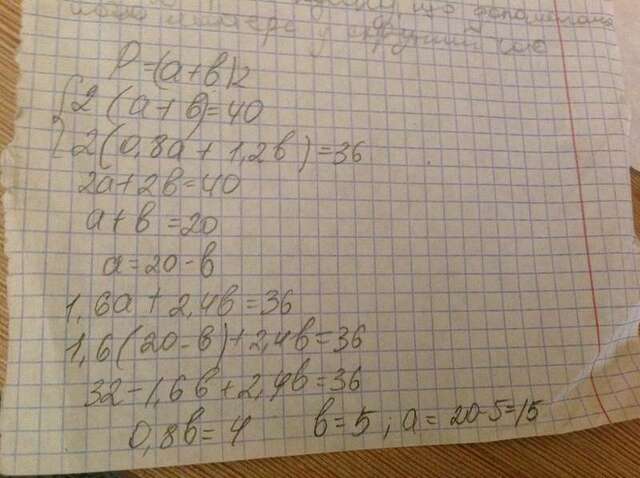 що допомагала
у другий
P=(a+b)2
{2(a+b)=40
2(0,8a+1,2b)=36
2a+2b=40
a+b=20
a=20-b
1,6a+2,4b=36
1,6(20-b)+2,4b=36
32-1,6b+2,4b=36
0,8b=4 b=5; a=20-5=15